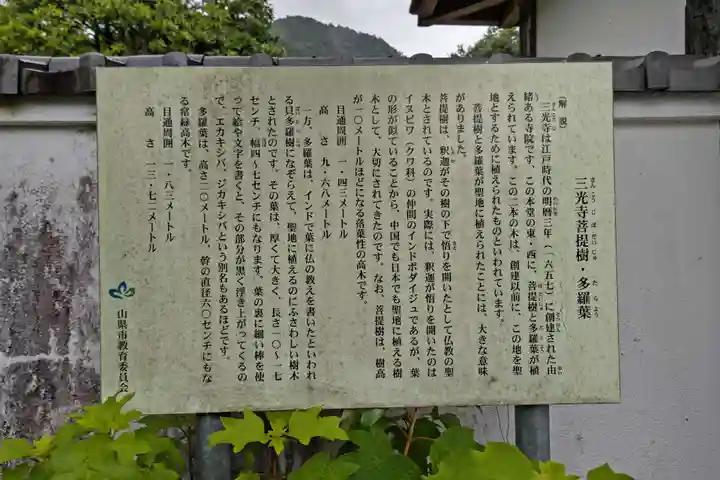 さんこうじぼだいじゅ たらよう
三光寺菩提樹・多羅葉
〔解説〕
三光寺は江戸時代の明暦三年(一六五七)に創建された由
緒ある寺院です。この本堂の東・西に、菩提樹と多羅葉が植
えられています。この二本の木は、創建以前に、この地を聖
地とするために植えられたものといわれています。
菩提樹と多羅葉が聖地に植えられたことには、大きな意味
がありました。
菩提樹は、釈迦がその樹の下で悟りを開いたとして仏教の聖
木とされているのです。実際には、釈迦が悟りを開いたのは
イヌビワ(クワ科)の仲間のインドボダイジュであるが、葉
の形が似ていることから、中国でも日本でも聖地に植える樹
木として、大切にされてきたのです。なお、菩提樹は、樹高
が一〇メートルほどになる落葉性の高木です。
目通周囲 一・四三メートル
高さ 九・六八メートル
一方、多羅葉は、インドで葉に仏の教えを書いたといわれ
る貝多羅樹になぞらえて、聖地に植えるのにふさわしい樹木
とされたのです。その葉は、厚くて大きく、長さ一〇〜一七
センチ、幅四〜七センチにもなります。葉の裏に細い棒を使
って絵や文字を書くと、その部分が黒く浮き上がってくるの
で、エカキシバ、ジカキシバという別名もあるほどです。
多羅葉は、高さ二〇メートル、幹の直径六〇センチにもな
る常緑高木です。
目通周囲 一・八三メートル
高さ 一三・七二メートル
山県市教育委員会